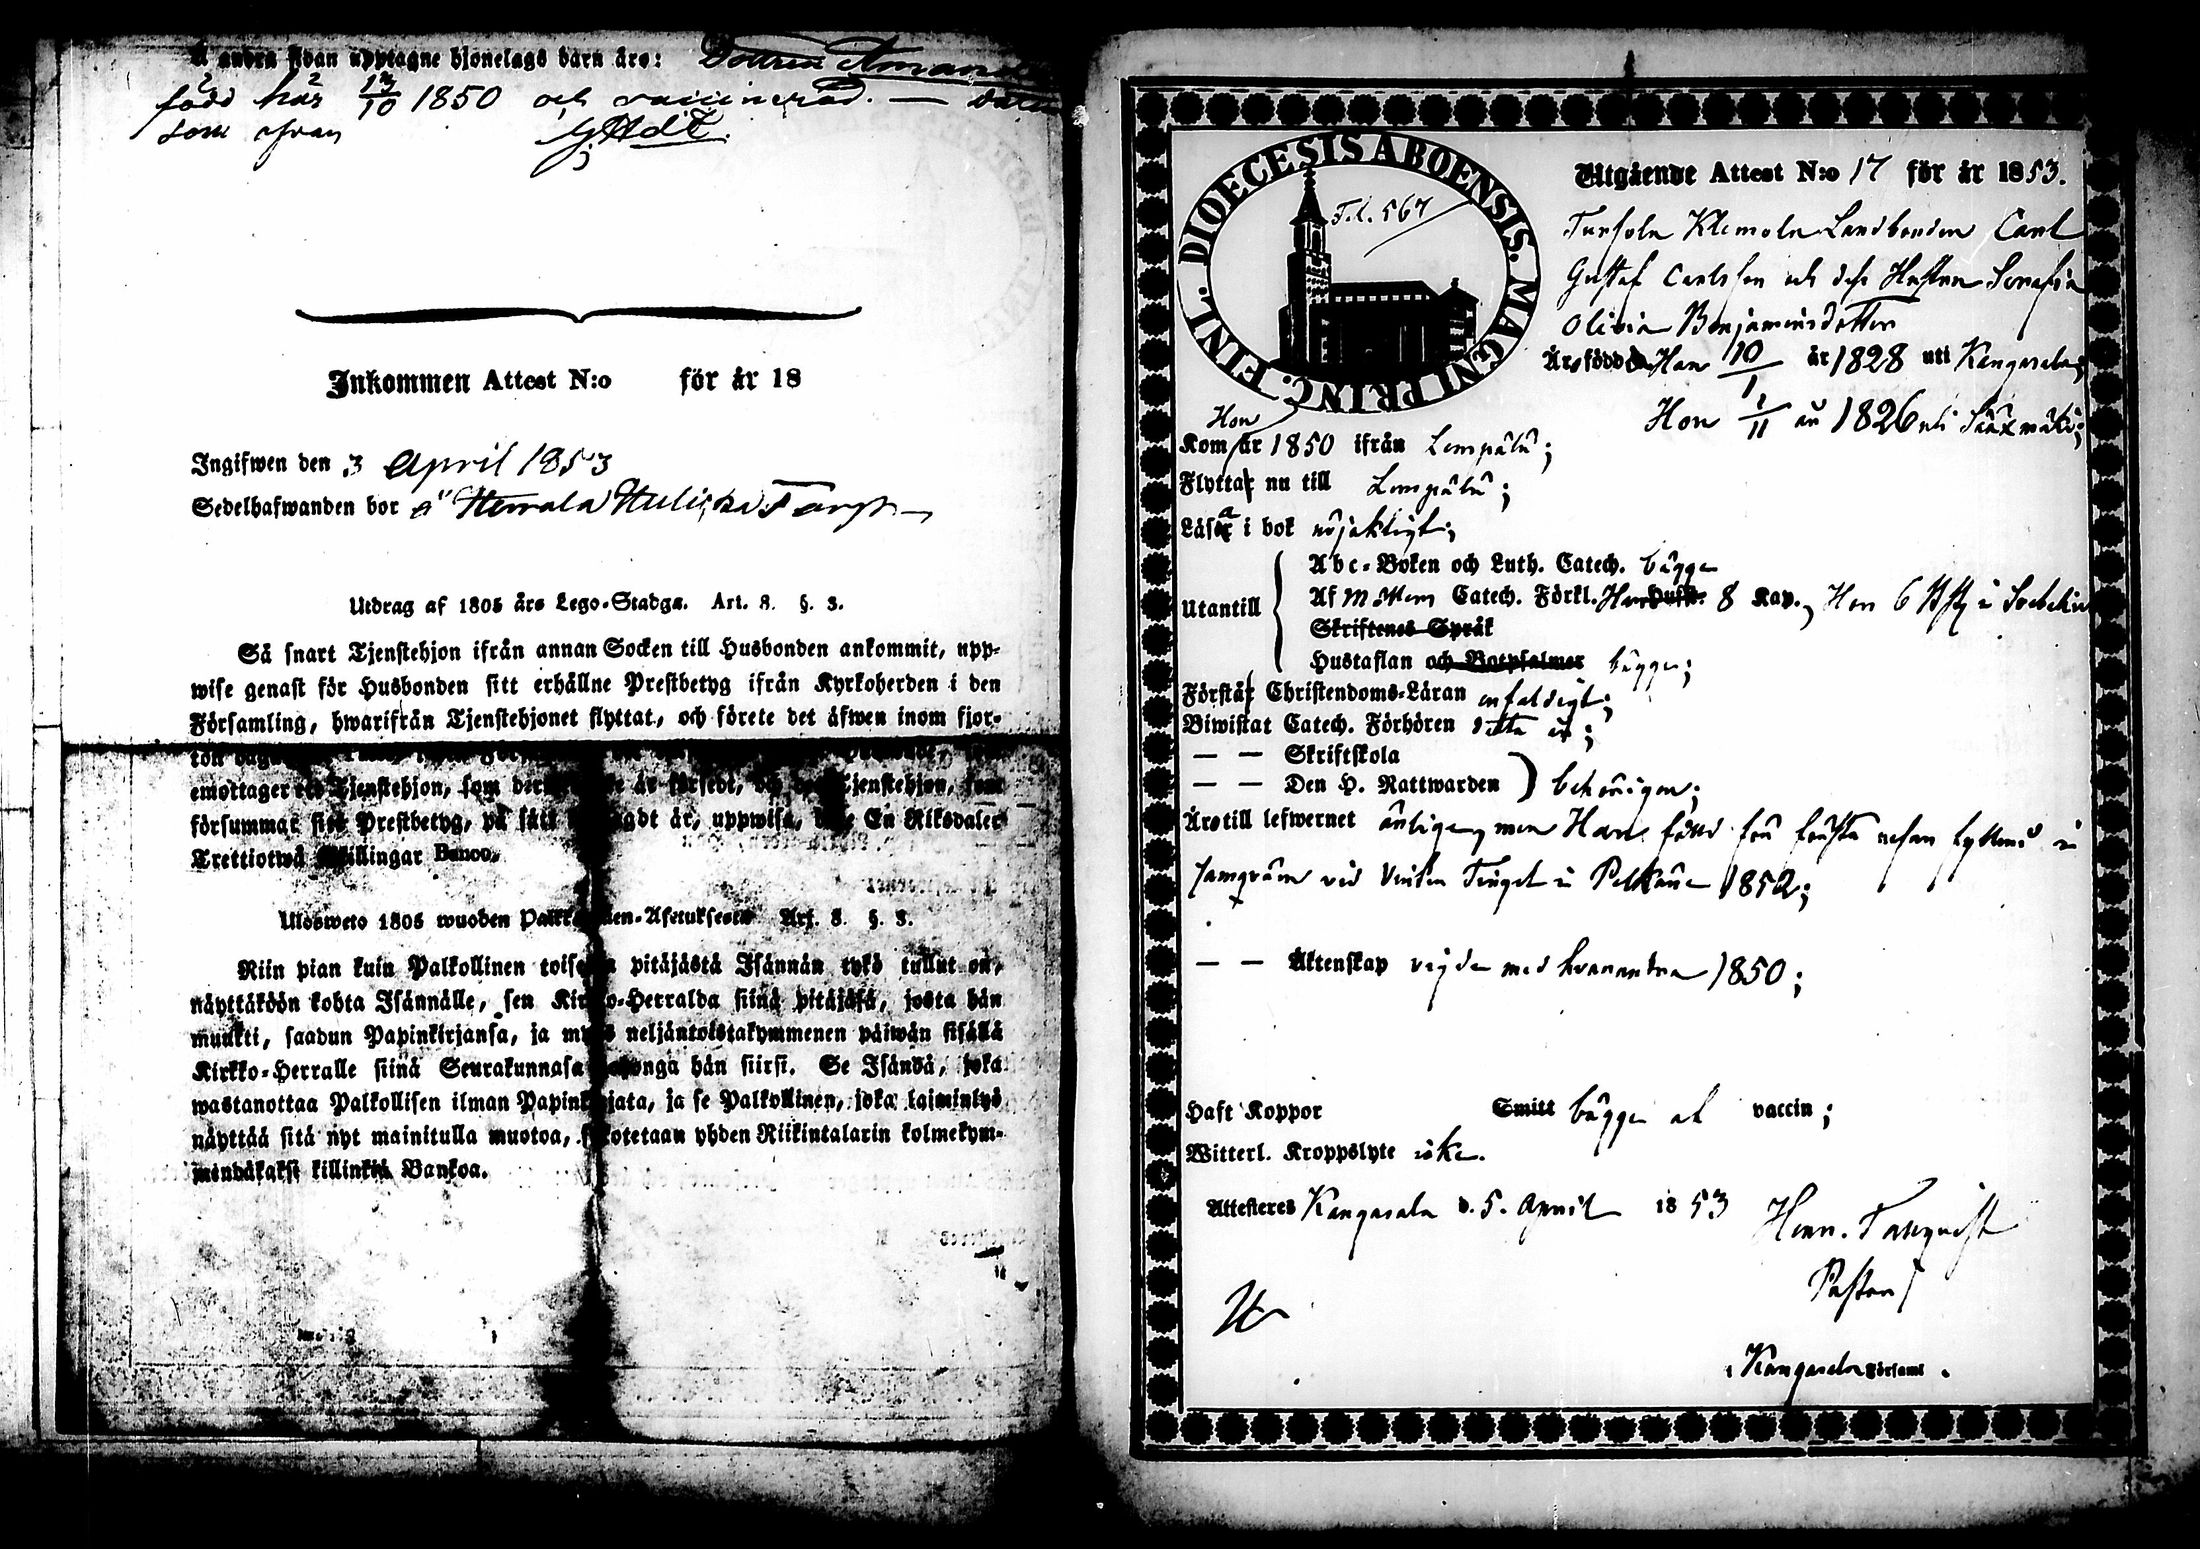 å andra sidan upptagne hjonelags barn äro: Dottren Amanda
född här 13/10 1850 och vaccinerad. — datum
som ofvan
Inkommen Attest N:o för år 18
Ingifwen den 3 April 1853
Sedelhafwanden bor å Herrala
Utdrag af 1805 års Lego-Stadga. Art. 8. §. 3.
Så snart Tjenstehjon ifrån annan Socken till Husbonden ankommit, upp-
wise genast för Husbonden sitt erhållne Prestbetyg ifrån Kyrkoherden i den
Församling, hwarifrån Tjenstehjonet flyttat, och förete det äfwen inom fjor-
ton
emottager Tjenstehjon, som är försedt, Tjenstehjon, som
försummar sitt Prestbetyg, på sätt sagdt är, uppwisa, En Riksdaler
Trettiotwå Skillingar Banco.
Ulosweto 1805 wuoden Palkollisten-Asetuksesta Art. 8. §. 3.
Niin pian kuin Palkollinen toisesta pitäjästä Isännän tykö tullut on,
näyttäköön kohta Isännälle, sen Kirkko-Herralda siinä pitäjäsä, josta hän
muutti, saadun Papinkirjansa, ja myös neljäntoistakymmenen päiwän sisällä
Kirkko-Herralle siinä Seurakunnasa hän siirsi. Se Isändä, joka
wastanottaa Palkollisen ilman Papinkirjata, ja se Palkollinen, joka laiminlyö
näyttää sitä nyt mainitulla muotoa, sakotetaan yhden Riikintalarin kolmekym-
mendäkaksi killinkiä Bankoa.
DIOECESIS ABOENSIS. MAGNI PRINC. FINL.
F.l. 567
Utgående Attest N:o 17 för år 1853.
Tursola Klemola Landbonden Carl
Gustaf Carlsson och dess Hustru Serafia
Olivia Benjaminsdotter
Äro födde Han 10/1 år 1828 uti Kangasala;
Hon 1/11 år 1826 uti Sääxmäki;
Hon
Kom år 1850 ifrån Lempälä;
Flytta nu till Lempälä;
Läsa i bok nöjaktigt;
Utantill
Abc-Boken och Luth. Catech. bägge
Af Möllers Catech. Förkl. Han 8 Kap., Hon 6 St i Svebelius
Skriftenes Språk
Hustaflan och Botpsalmer bägge;
Förstå Christendoms-Läran enfaldigt;
Biwistat Catech. Förhören detta år;
— — Skriftskola
— — Den H. Nattwarden behörigen;
Äro till lefwernet ärlige, men Han fälld för första resan fylleri i
vid Vinter Tinget i Pelkäne 1852;
— — Äktenskap vigde med hvarandra 1850;
Haft Koppor Smitt bägge af vaccin;
Witterl. Kroppslyte icke.
Attesteras Kangasala d. 5. April 1853
Henr. Tallqvist
Pastor
Kangasala Församl.